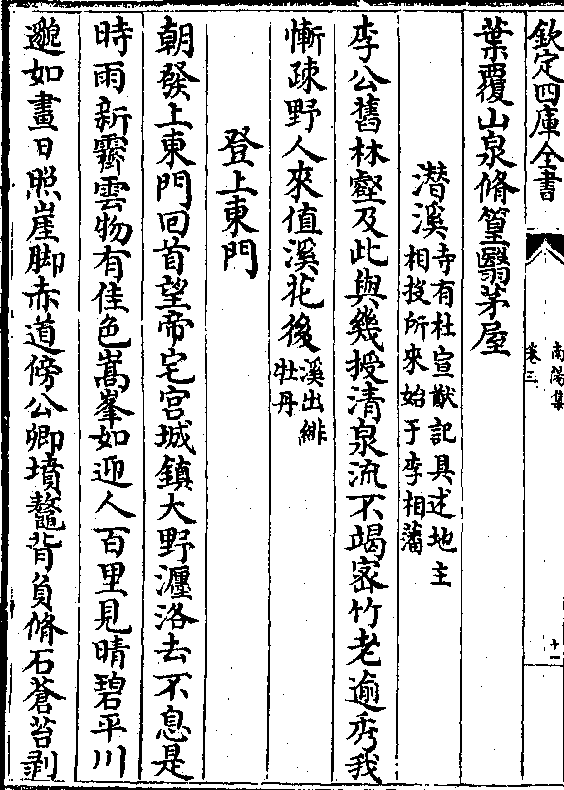 欽定四庫全書
南陽集
卷三
十一
葉覆山泉脩篁翳茅屋
潜溪寺有杜宣猷記具述地主
相授所來始于李相藩
李公舊林壑及此與幾授清泉流不竭宻竹老逾秀我
慚疎野人來值溪花後溪出緋
牡丹
登上東門
朝發上東門回首望帝宅宫城鎮大野瀍洛去不息是
時雨新霽雲物有佳色嵩峯如迎人百里見晴碧平川
邈如畫日照崖脚赤道傍公卿墳鼇背負脩石蒼苔剥